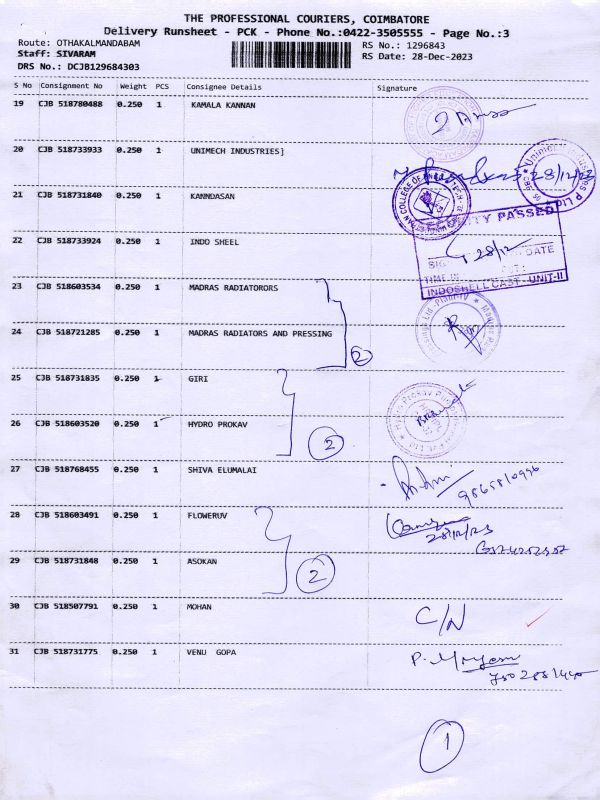 THE PROFESSIONAL COURIERS, COIMBATORE
Delivery Runsheet - PCK - Phone No.:0422-3505555 - Page No.:3
Route: OTHAKALMANDABAM
RS No.: 1296843
Staff: SIVARAM
RS Date: 28-Dec-2023
DRS No.: DCJB129684303
S No Consignment No Weight PCS Consignee Details Signature
19 CJB 518780488 0.250 1 KAMALA KANNAN
20 CJB 518733933 0.250 1 UNIMECH INDUSTRIES]
28/12/23
21 CJB 518731840 0.250 1 KANNDASAN
PASSED
22 CJB 518733924 0.250 1 INDO SHEEL
28/12
DATE
TIME IN
INDOSHELL CAST UNIT-II
23 CJB 518603534 0.250 1 MADRAS RADIATORORS
24 CJB 518721285 0.250 1 MADRAS RADIATORS AND PRESSING
2
25 CJB 518731835 0.250 1 GIRI
26 CJB 518603520 0.250 1 HYDRO PROKAV
2
27 CJB 518768455 0.250 1 SHIVA ELUMALAI
28 CJB 518603491 0.250 1 FLOWERUV
28/12/23
29 CJB 518731848 0.250 1 ASOKAN
2
30 CJB 518507791 0.250 1 MOHAN
C/N
31 CJB 518731775 0.250 1 VENU GOPA
1